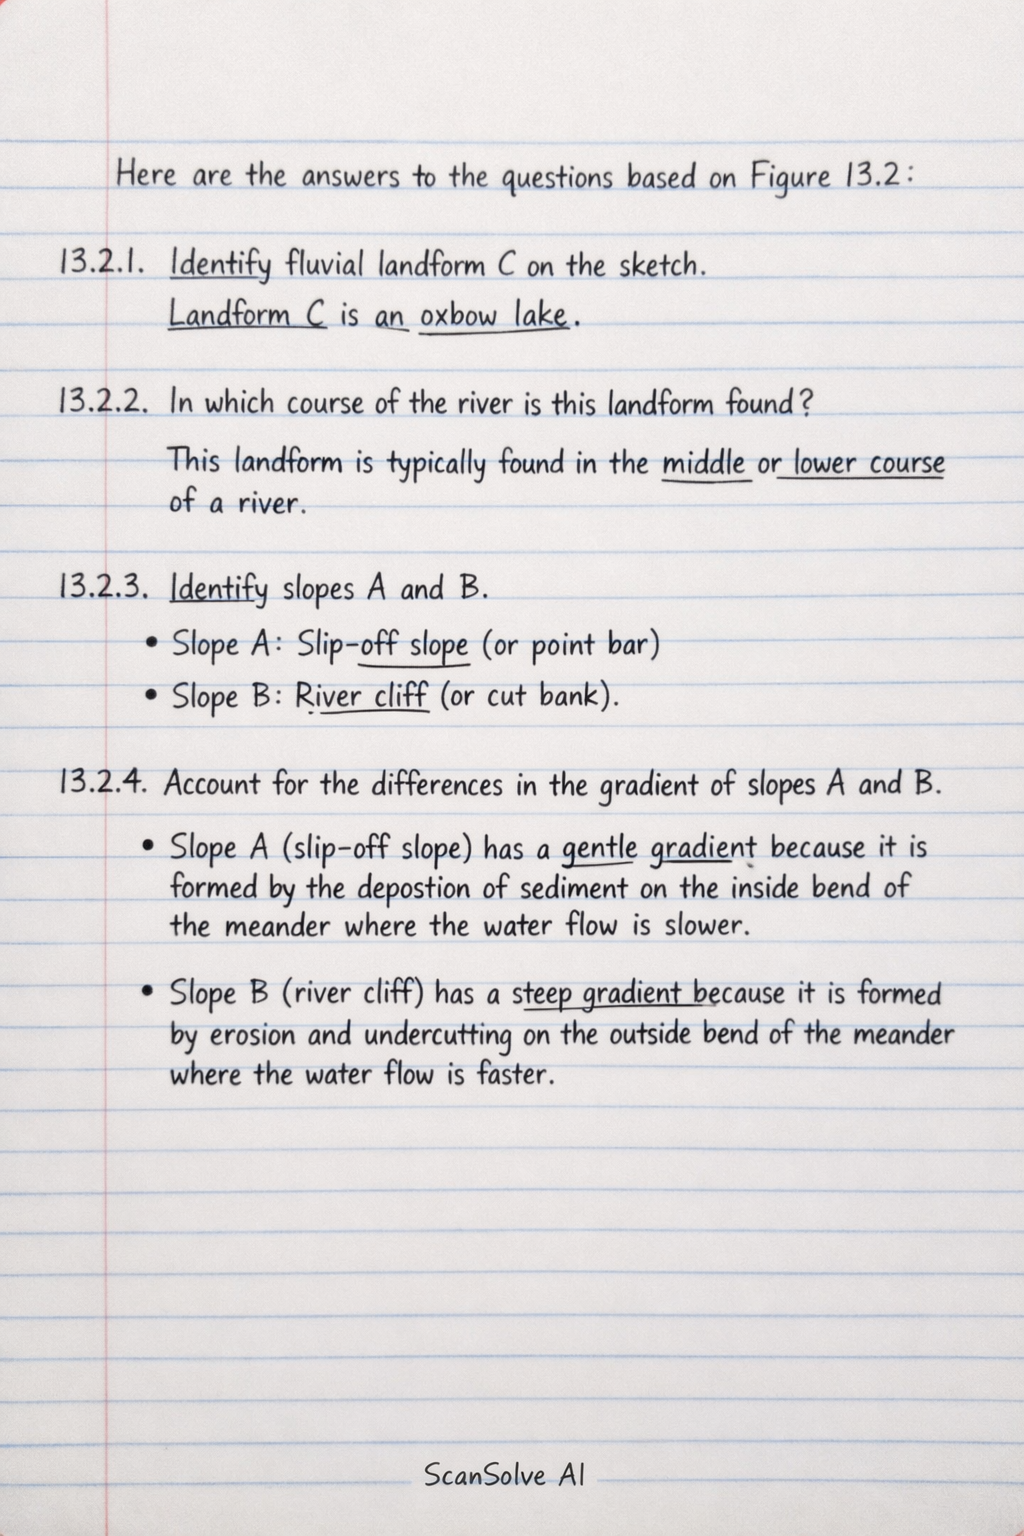 Here are the answers to the questions based on Figure 13.2:
13.2.1. Identify fluvial landform C on the sketch.
Landform C is an oxbow lake.
13.2.2. In which course of the river is this landform found?
This landform is typically found in the middle or lower course
of a river.
13.2.3. Identify slopes A and B.
• Slope A: Slip-off slope (or point bar)
• Slope B: River cliff (or cut bank).
13.2.4. Account for the differences in the gradient of slopes A and B.
• Slope A (slip-off slope) has a gentle gradient because it is
formed by the depostion of sediment on the inside bend of
the meander where the water flow is slower.
• Slope B (river cliff) has a steep gradient because it is formed
by erosion and undercutting on the outside bend of the meander
where the water flow is faster.
ScanSolve AI